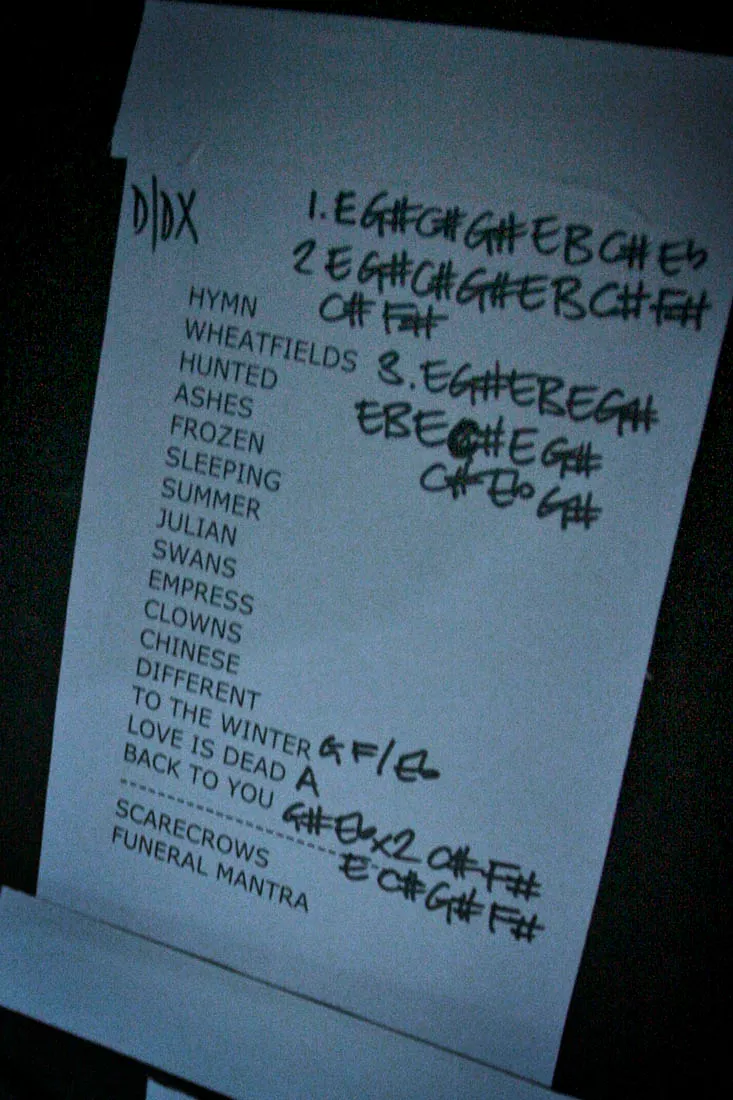 D/DX
1. E G# C# G# E B C# Eb
2 E G# C# G# E B C# F#
C# F#
HYMN
WHEATFIELDS
3. E G# E B E G#
HUNTED
ASHES
E B E C# E G#
FROZEN
C# Eb G#
SLEEPING
SUMMER
JULIAN
SWANS
EMPRESS
CLOWNS
CHINESE
DIFFERENT
TO THE WINTER G F/Eb
LOVE IS DEAD A
BACK TO YOU G# Eb x2 C# F#
--------------------
E C# G# F#
SCARECROWS
FUNERAL MANTRA